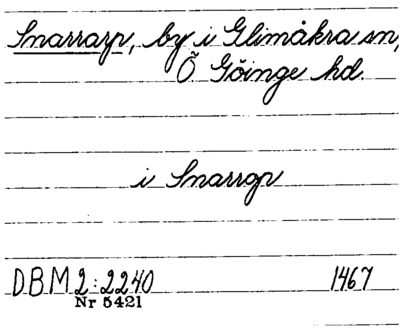 Snarrarp, by i Glimåkra sn,
Ö Göinge hd.
i Snarrop
DBM 2:2240 1467
Nr 5421